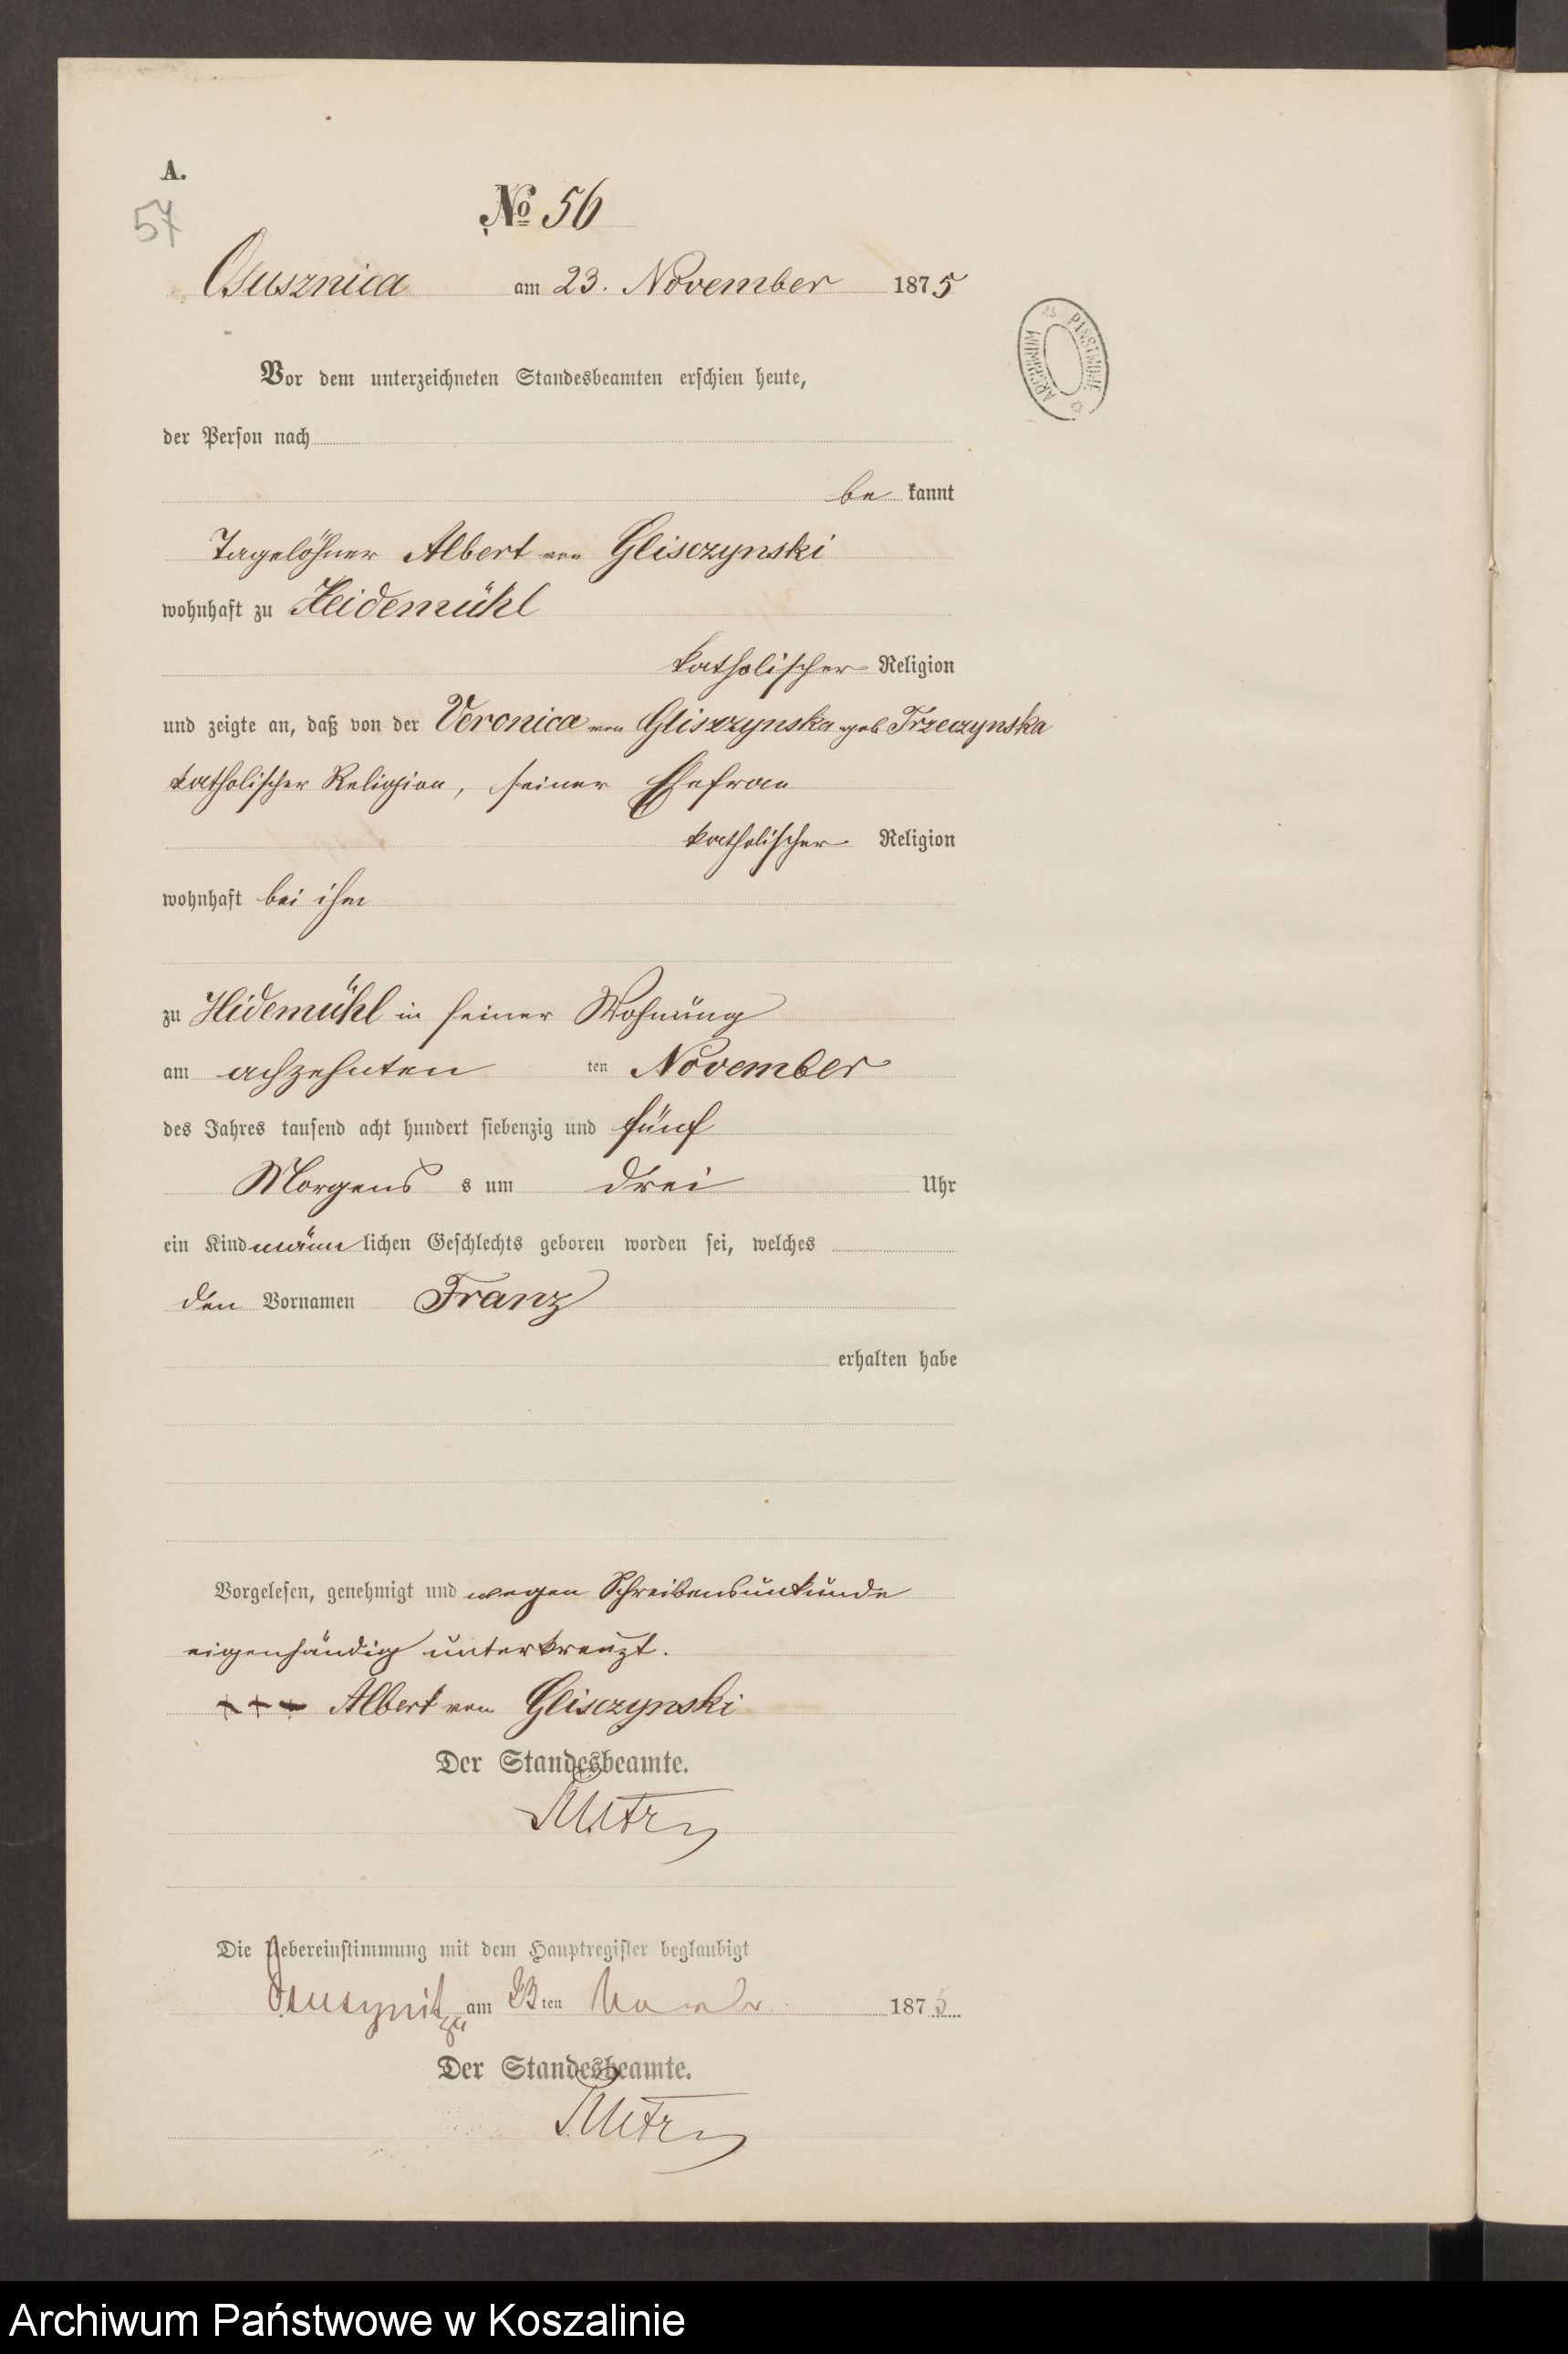 A.
57
№ 56
Osusznica am 23. November 1875
Vor dem unterzeichneten Standesbeamten erschien heute,
der Person nach
be kannt
Tagelöhner Albert von Glisczynski
wohnhaft zu Heidemühl
katholischer Religion
und zeigte an, daß von der Veronica von Gliszzynska geb Trzeczynska
katholischer Religion, seiner Ehefrau
katholischer Religion
wohnhaft bei ihm
zu Hidemühl in seiner Wohnung
am achzehnten ten November
des Jahres tausend acht hundert siebenzig und fünf
Morgens s um drei Uhr
ein Kind männ lichen Geschlechts geboren worden sei, welches
den Vornamen Franz
erhalten habe
Vorgelesen, genehmigt und wegen Schreibensunkunde
eigenhändig unterkreuzt.
+++ Albert von Glisczynski
Der Standesbeamte.
Die Uebereinstimmung mit dem Hauptregister beglaubigt
am 23ten 1875
Der Standesbeamte.
ARCHIWUM PAŃSTWOWE
Archiwum Państwowe w Koszalinie